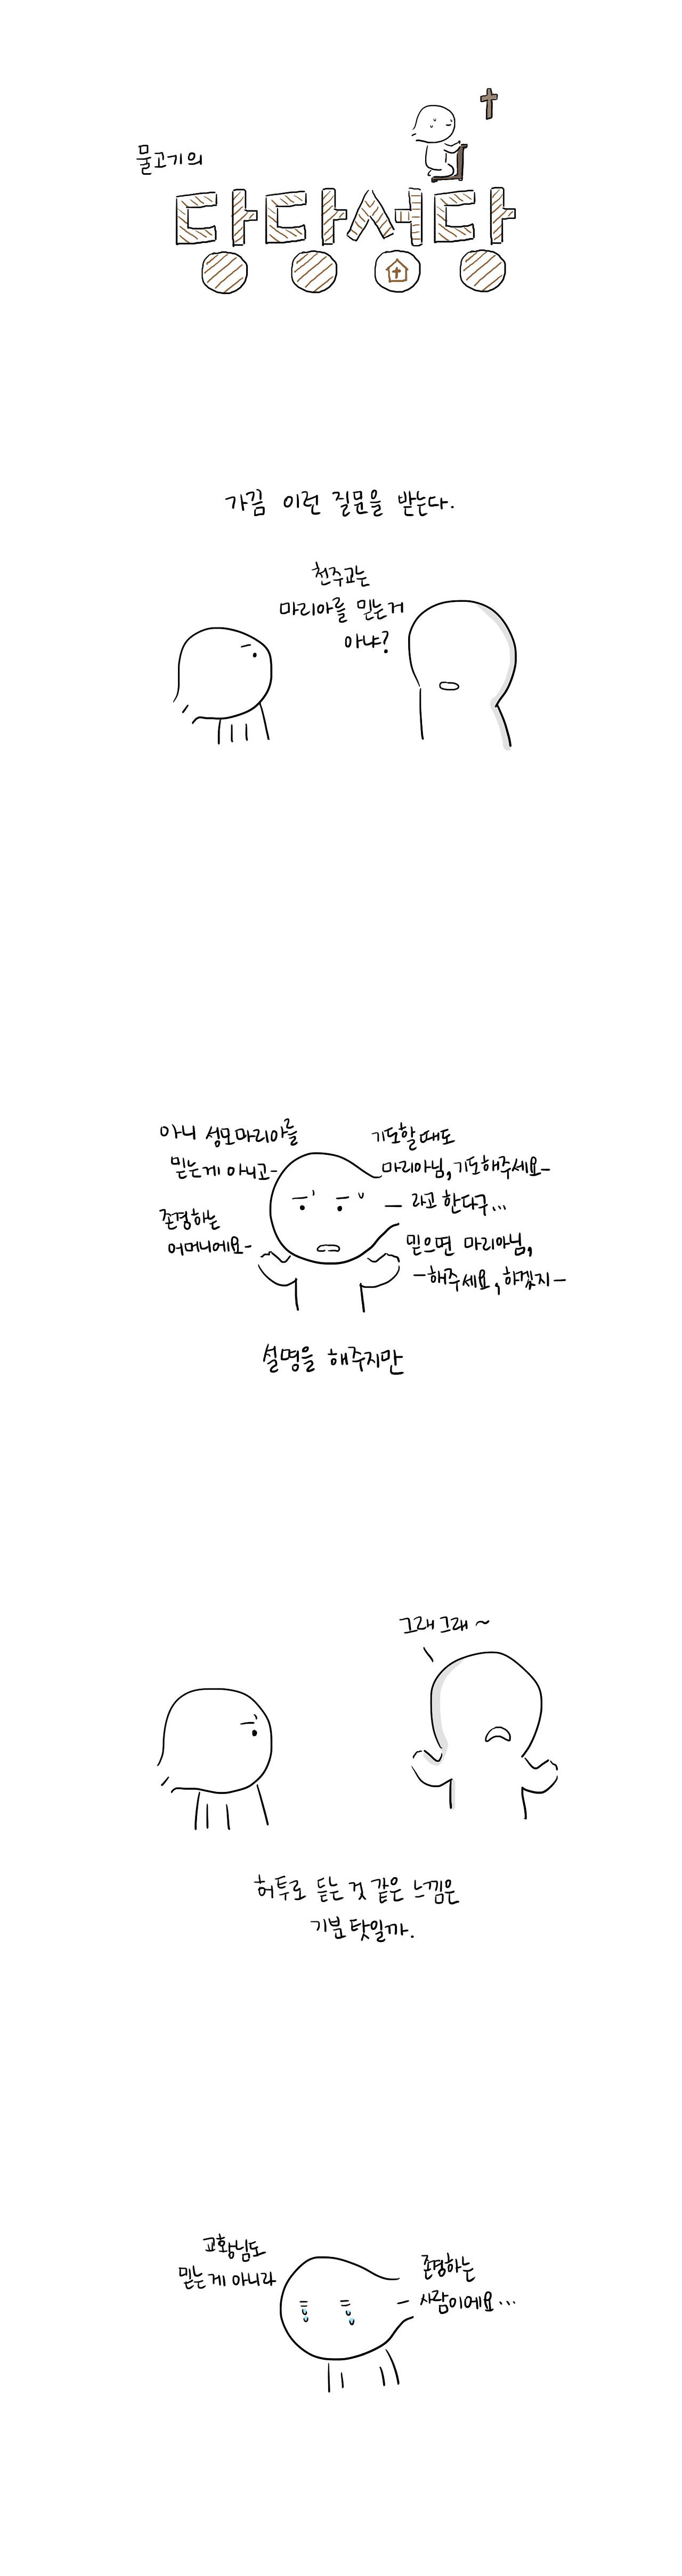 물고기의
당당성당
가끔 이런 질문을 받는다.
천주교는
마리아를 믿는거
아냐?
아니 성모마리아를
믿는게 아니고-
존경하는
어머니에요-
기도할때도
마리아님, 기도해주세요-
- 라고 한다구...
믿으면 마리아님,
-해주세요, 하겠지-
설명을 해주지만
그래그래~
허투로 듣는 것 같은 느낌은
기분탓일까.
교황님도
믿는게 아니라
존경하는
- 사람이에요...